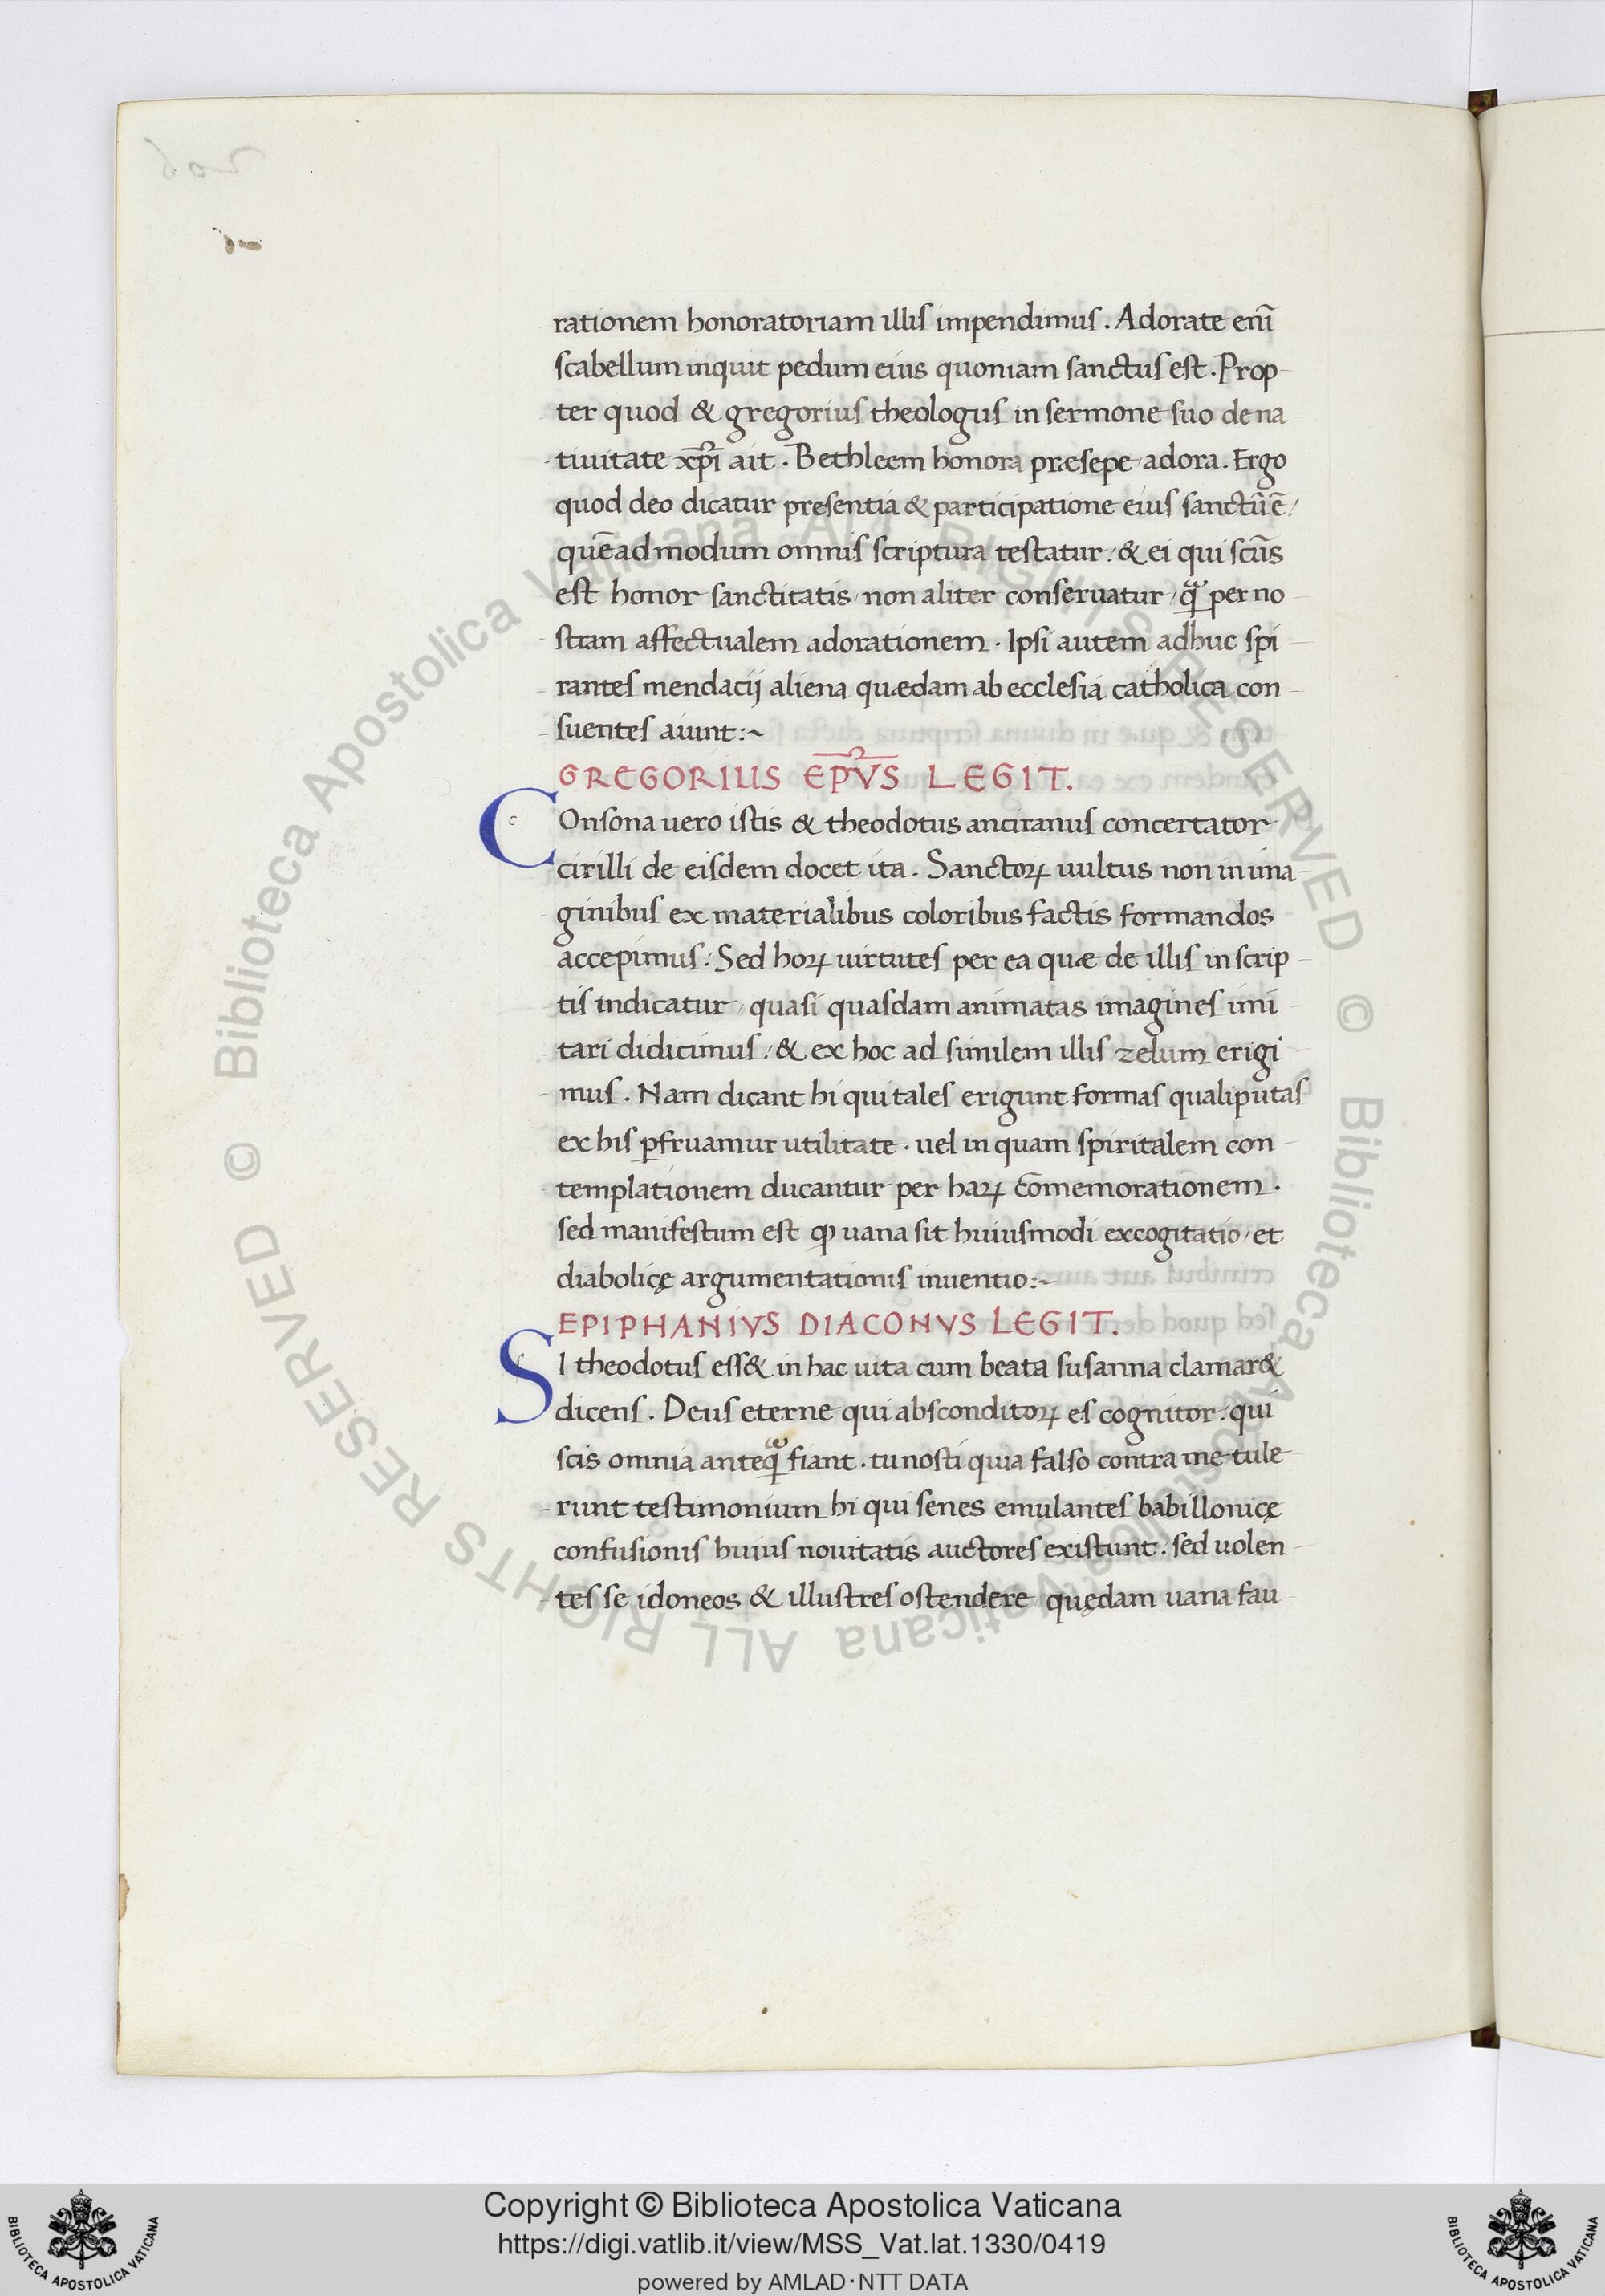 rationem honoratoriam illis impendimus. Adorate eni͞
scabellum inquit pedum eius quoniam sanctus est. Prop
ter quod & gregorius theologus in sermone suo de na
tiuitate xp͞i ait. Bethleem honora præsepe adora. Ergo
quod deo dicatur presentia & participatione eius sanctu͞ e͞/
que͞admodum omnis scriptura testatur/ & ei qui sc͞us
est honor sanctitatis/ non aliter conseruatur/ qᷓ per no
stram affectualem adorationem. Ipsi autem adhuc spi
rantes mendacij aliena quædam ab ecclesia catholica con
suentes aiunt:~
GREGORIUS EP͞VS LEGIT.
COnsona uero istis & theodotus anciranus concertator
cirilli de eisdem docet ita. Sanctoꝝ uultus non in ima
ginibus ex materialibus coloribus factis formandos
accepimus. Sed hoꝝ uirtutes per ea quæ de illis in scrip
tis indicatur/ quasi quasdam animatas imagines imi
tari didicimus/ & ex hoc ad similem illis zelum erigi
mus. Nam dicant hi qui tales erigunt formas qualiputas
ex his ꝑfruamur utilitate. uel in quam spiritalem con
templationem ducantur per haꝝ co͞memorationem.
sed manifestum est ꝙ uana sit huiusmodi excogitatio/ et
diabolicę argumentationis inuentio:~
EPIPHANIVS DIACONVS LEGIT.
SI theodotus ess& in hac uita cum beata susanna clamar&
dicens. Deus eterne qui absconditoꝝ es cognitor. qui
scis omnia anteqᷓ fiant. tu nosti quia falso contra me tule
runt testimonium hi qui senes emulantes babillonicę
confusionis huius nouitatis auctores existunt. sed uolen
tes se idoneos & illustres ostendere/ quędam uana fau
© Biblioteca Apostolica Vaticana ALL RIGHTS RESERVED © Biblioteca Apostolica Vaticana ALL RIGHTS RESERVED
Copyright © Biblioteca Apostolica Vaticana
https://digi.vatlib.it/view/MSS_Vat.lat.1330/0419
powered by AMLAD·NTT DATA
BIBLIOTECA APOSTOLICA VATICANA
BIBLIOTECA APOSTOLICA VATICANA